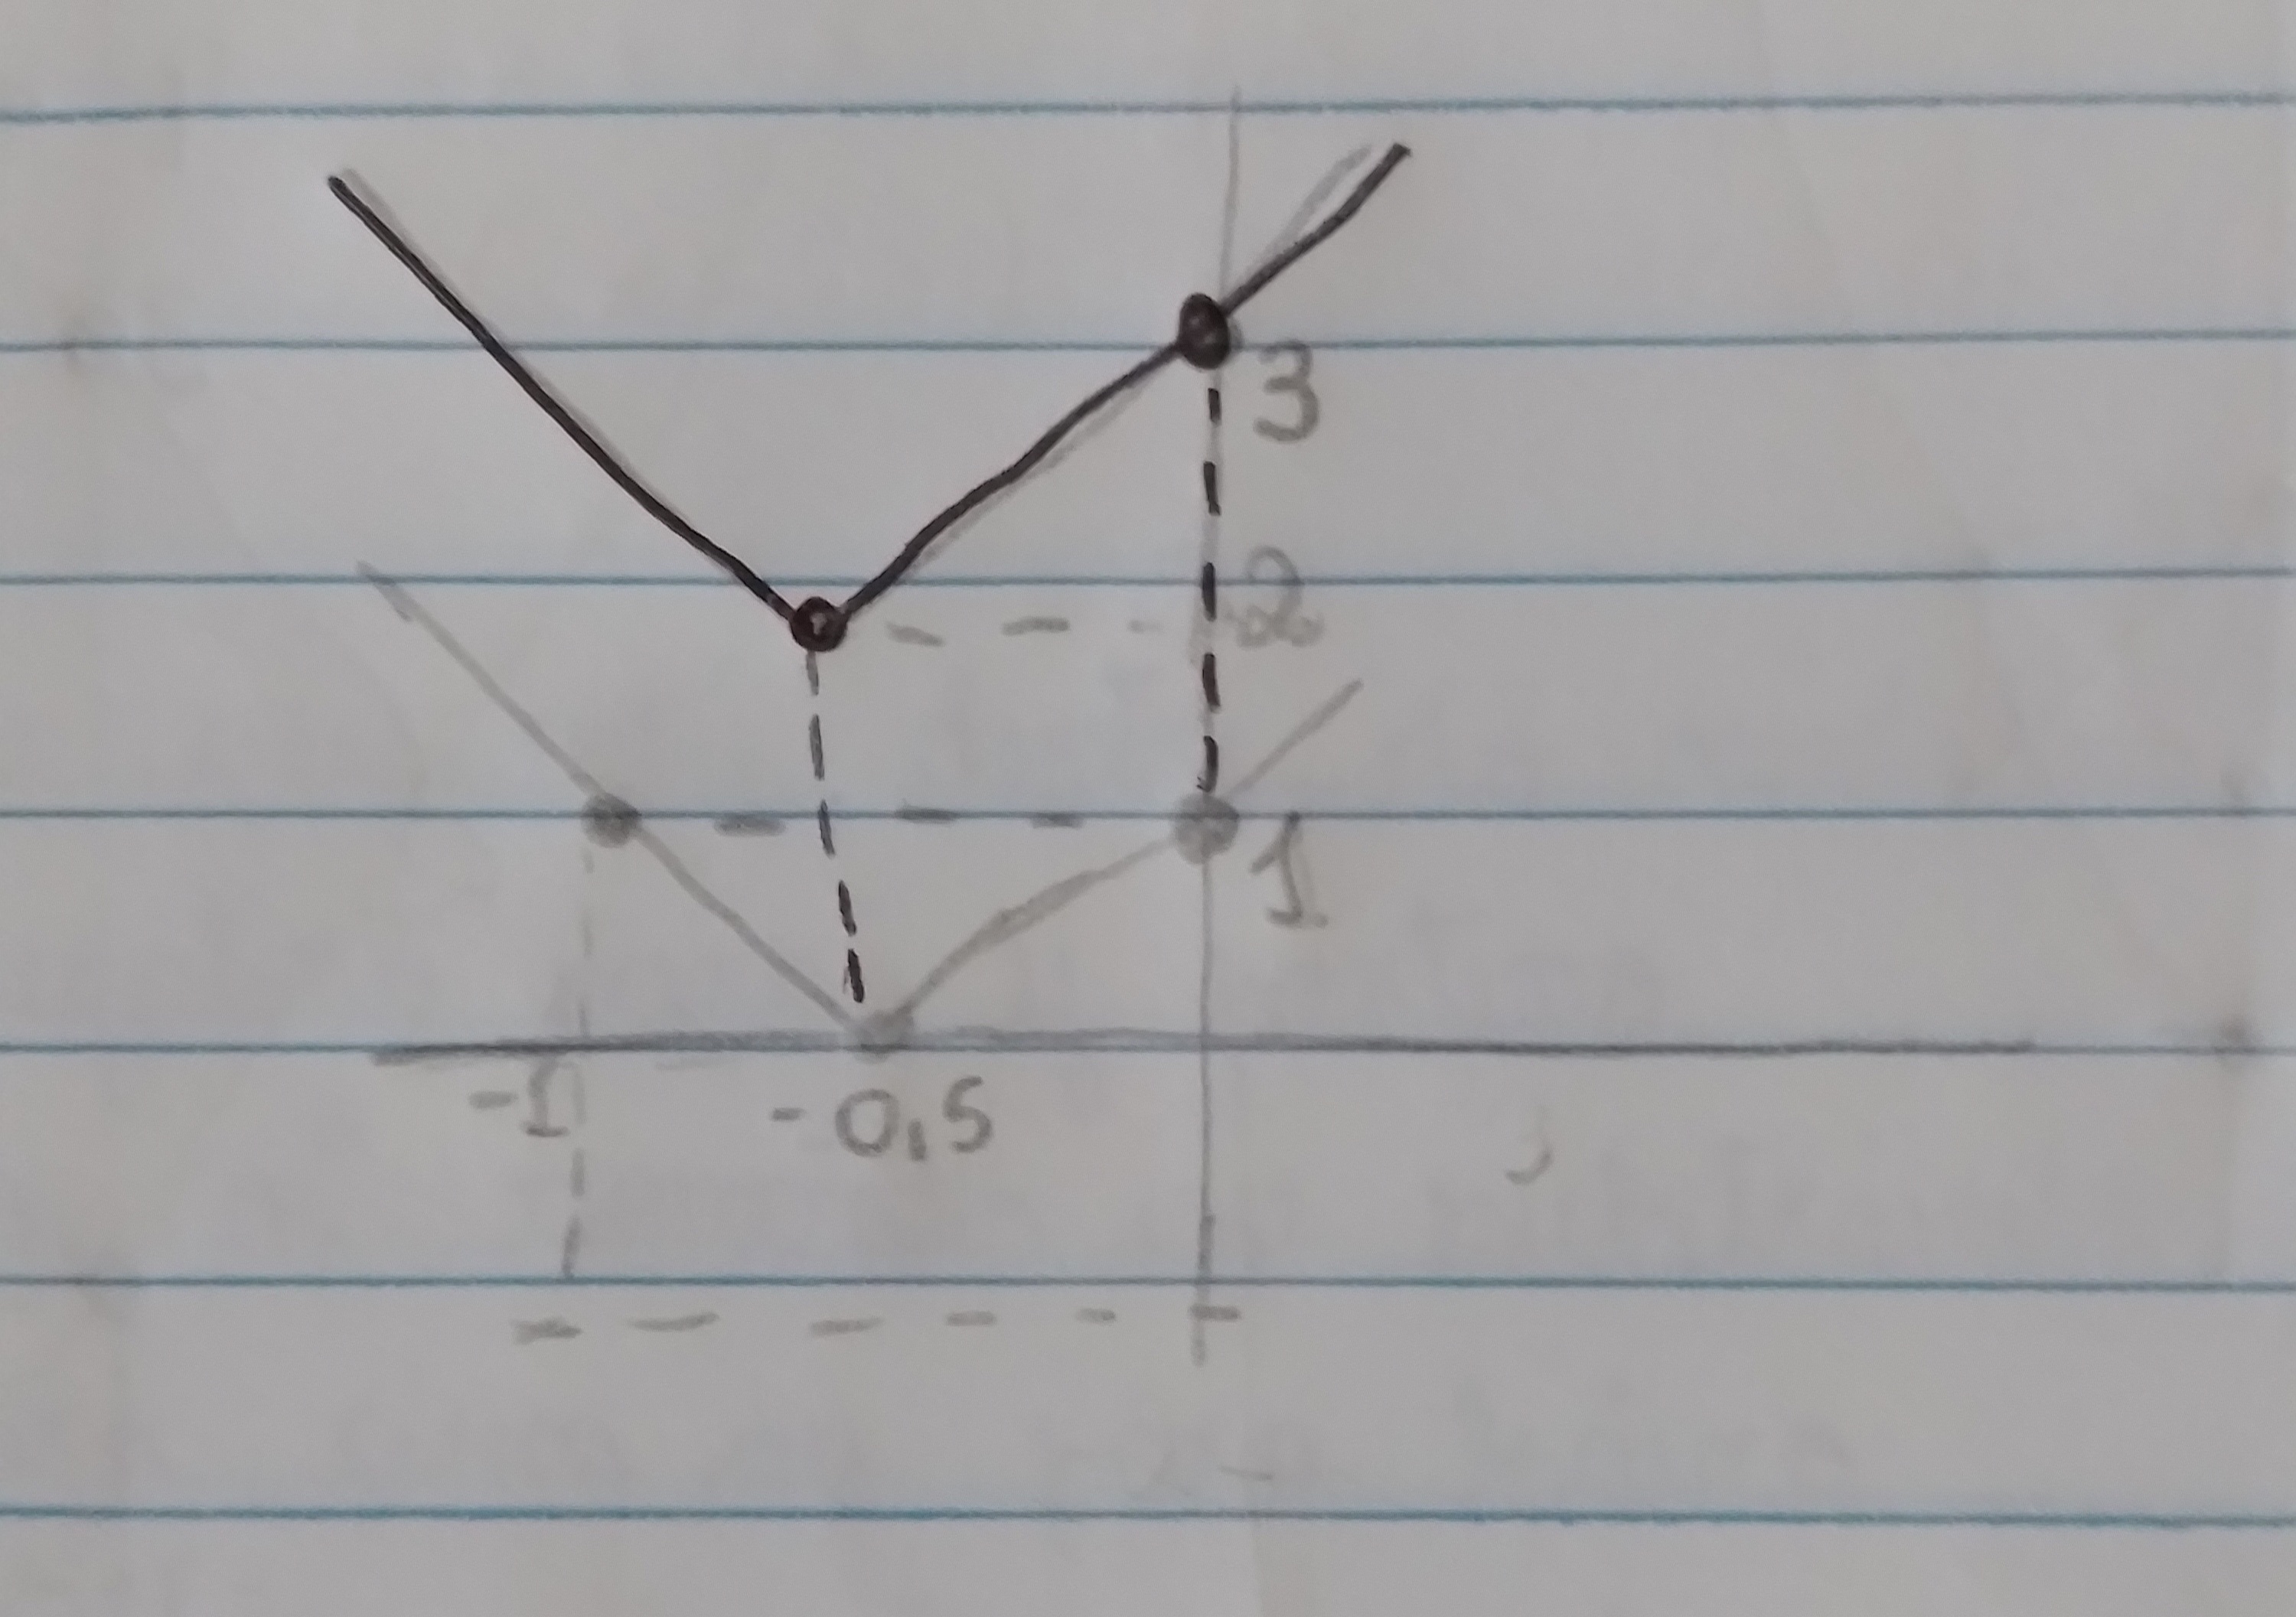 3
2
1
-1 -0,5